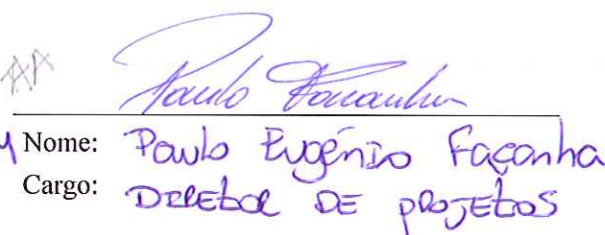 Paulo Façanha
Nome: Paulo Eugênio Façanha
Cargo: DIRETOR DE PROJETOS